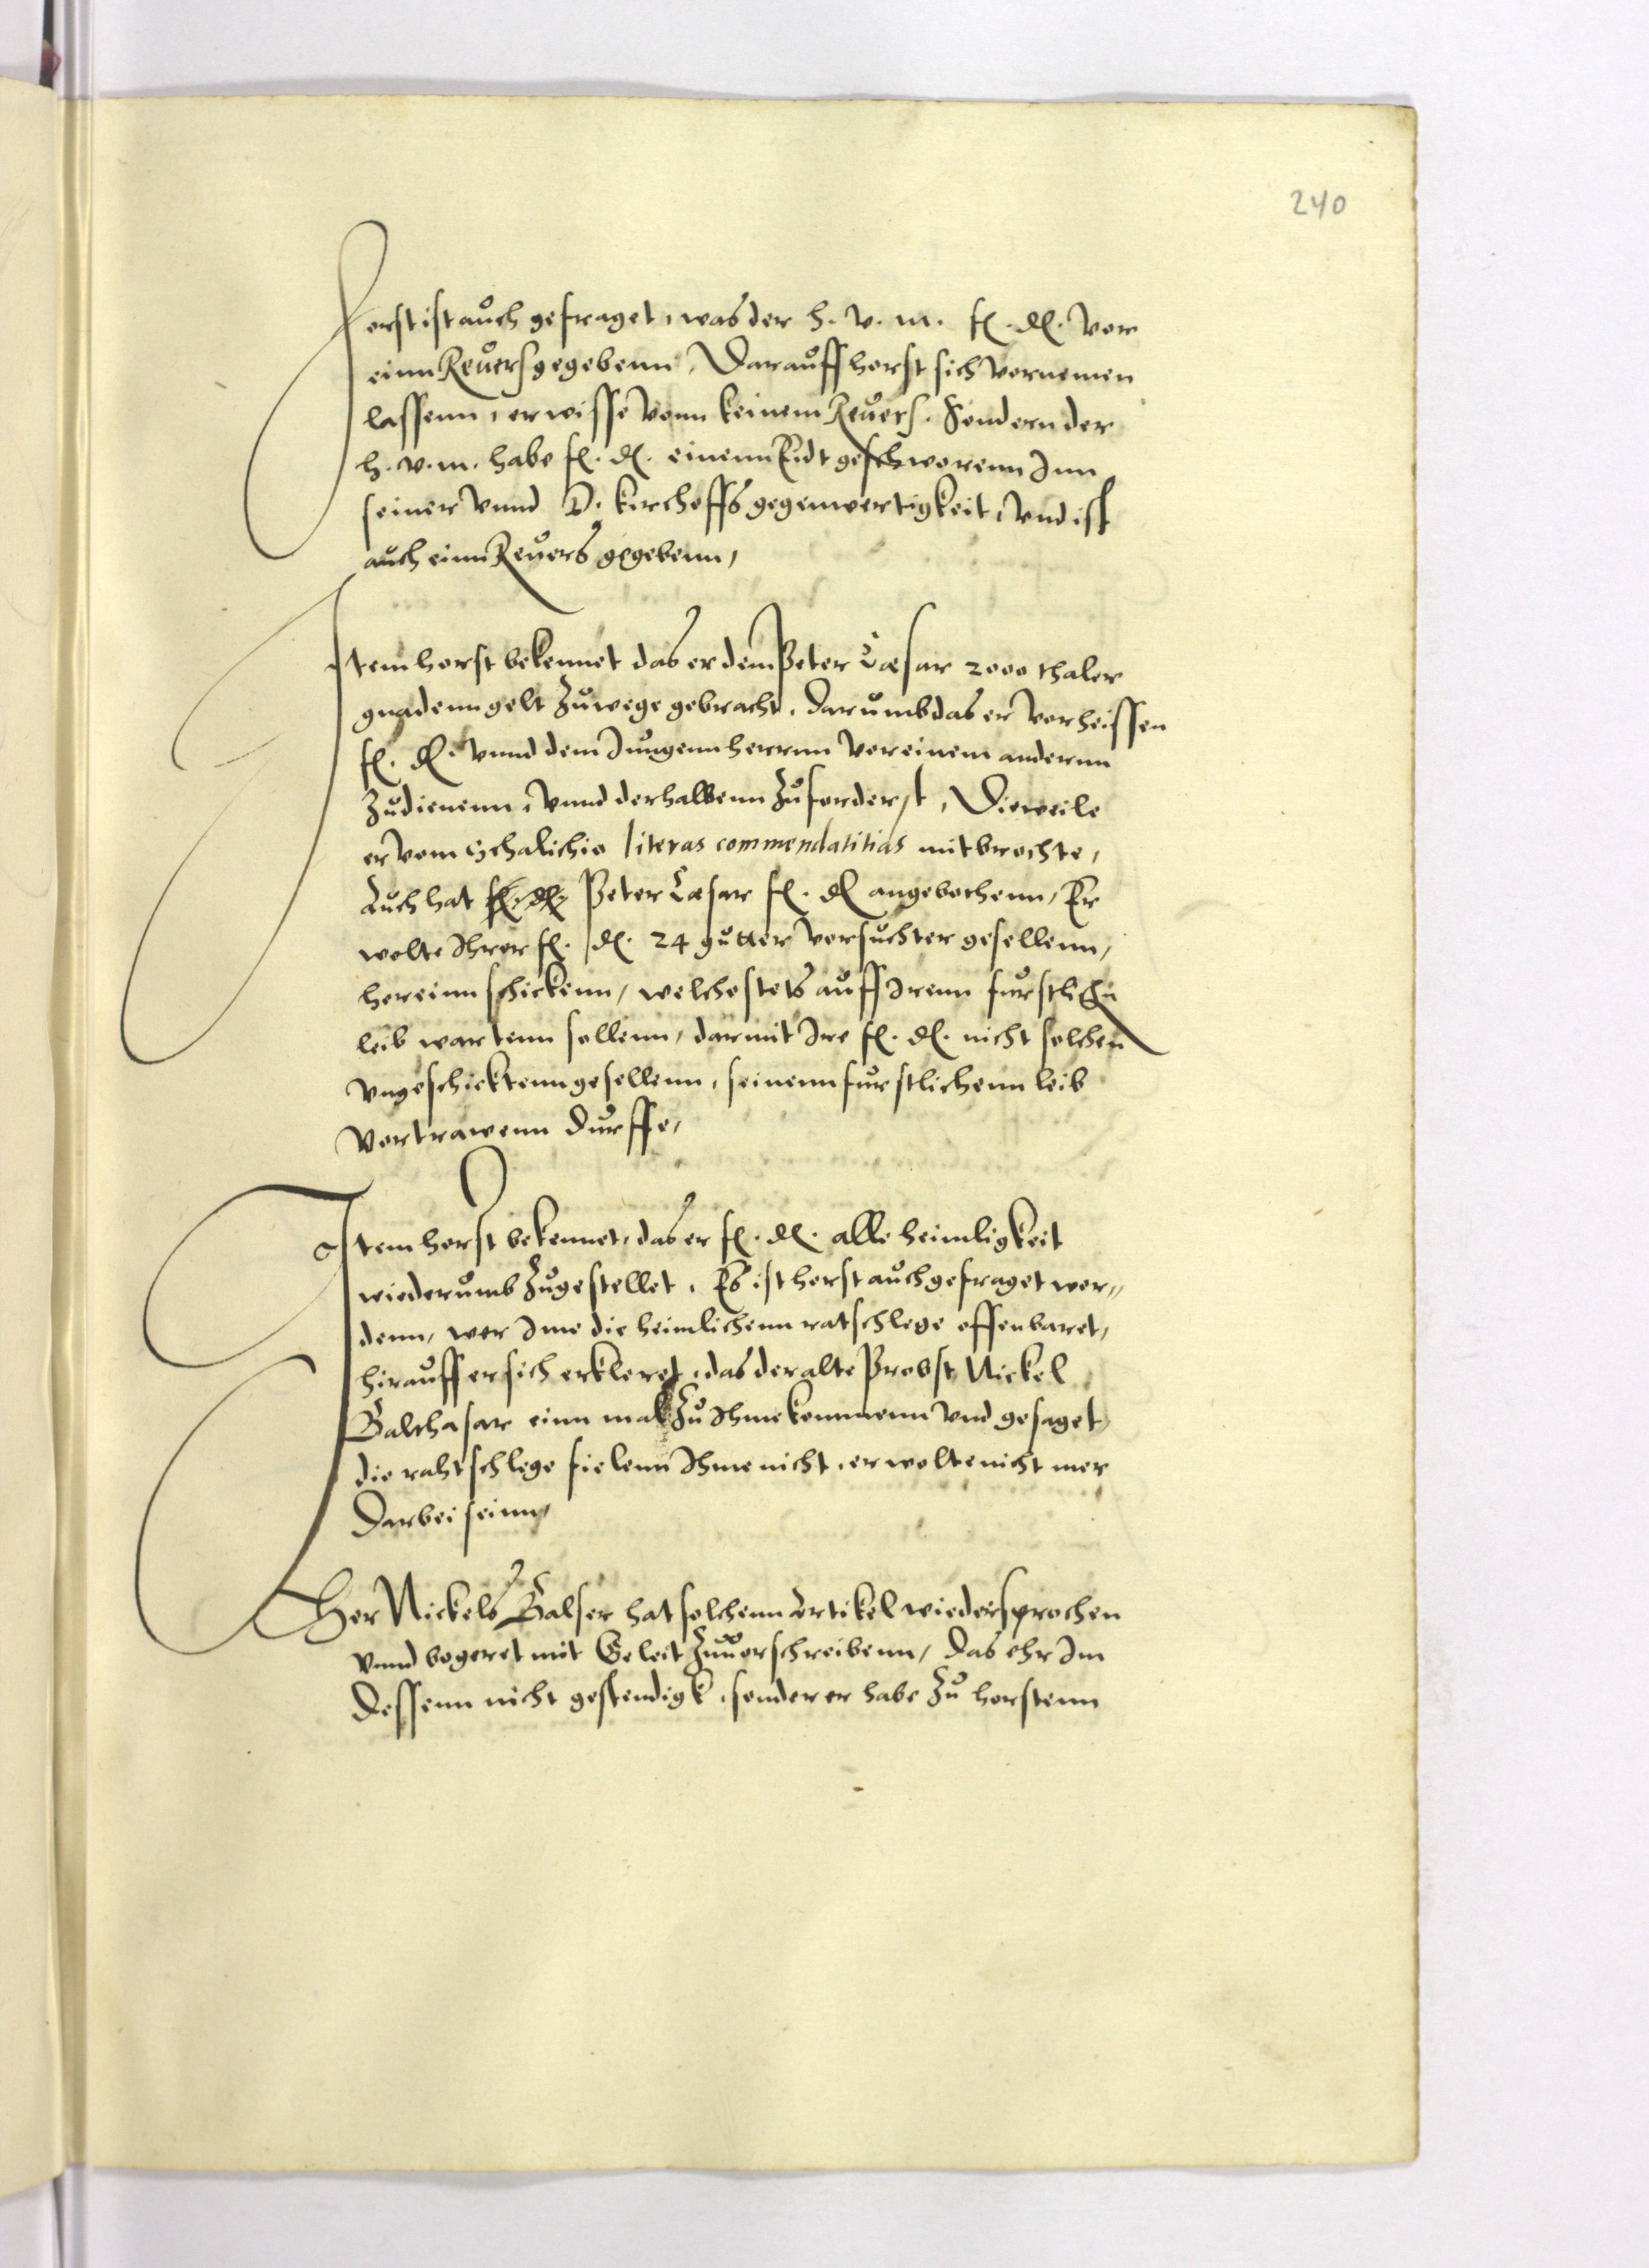 240
Horst ist auch gefraget, was der h. v. m. fl. dl. vor
einn Reuers gegebenn, Darauff horst sich vornemen
lassenn, er wisse vonn keinem Reuers. Sondern der
h. v. m. habe fl. dl. einenn Eidt geschworenn Inn
seiner vnnd D. kirchoffs gegenwertigkeit, vnd ist
auch einn Reuers gegebenn,
Item horst bekennet das er dem Peter Cæsar 2000 thaler
gnadenngelt zuwege gebracht, darumb das er vorheissen
fl. dl. vnnd dem Jungenn herrnn vor einem andernn
zudienenn, vnnd derhalbenn zufordert, Dieweile
er vom Schalichio literas commendatitias mitbrochte,
Auch hat fl. dl. Peter Cæsar fl. dl angebothenn, Er
wolte Ihrer fl. dl. 24 gutter vorsuchter gesellenn,
hereinn schickenn, welche stets auff Irenn furstlichn
leib wartenn sollenn, darmit Ire fl. dl. nicht solchen
vngeschicktenn gesellenn, seinenn furstlichenn leib
vortrawenn durffe,
Item horst bekennet, das er fl. dl. alle heimligkeit
wiederumb zugestellet. Es ist horst auch gefraget wor„
denn, wer Ime die heimlichenn ratschlege offenbaret,
hirauff er sich erkleret, das der alte Probst Nickel
Balthasar einn mal zu Ihme kommenn vnd gesaget,
die rahtschlege fielenn Ihme nicht, er wolte nicht mer
Darbei seinn,
Her Nickels Balser hat solchenn Artikel wiedersprochen
vnnd begeret mit Geleit zuuorschreibenn, das ehr Im
dessenn nicht gestendigk, sonder er habe zu horstenn